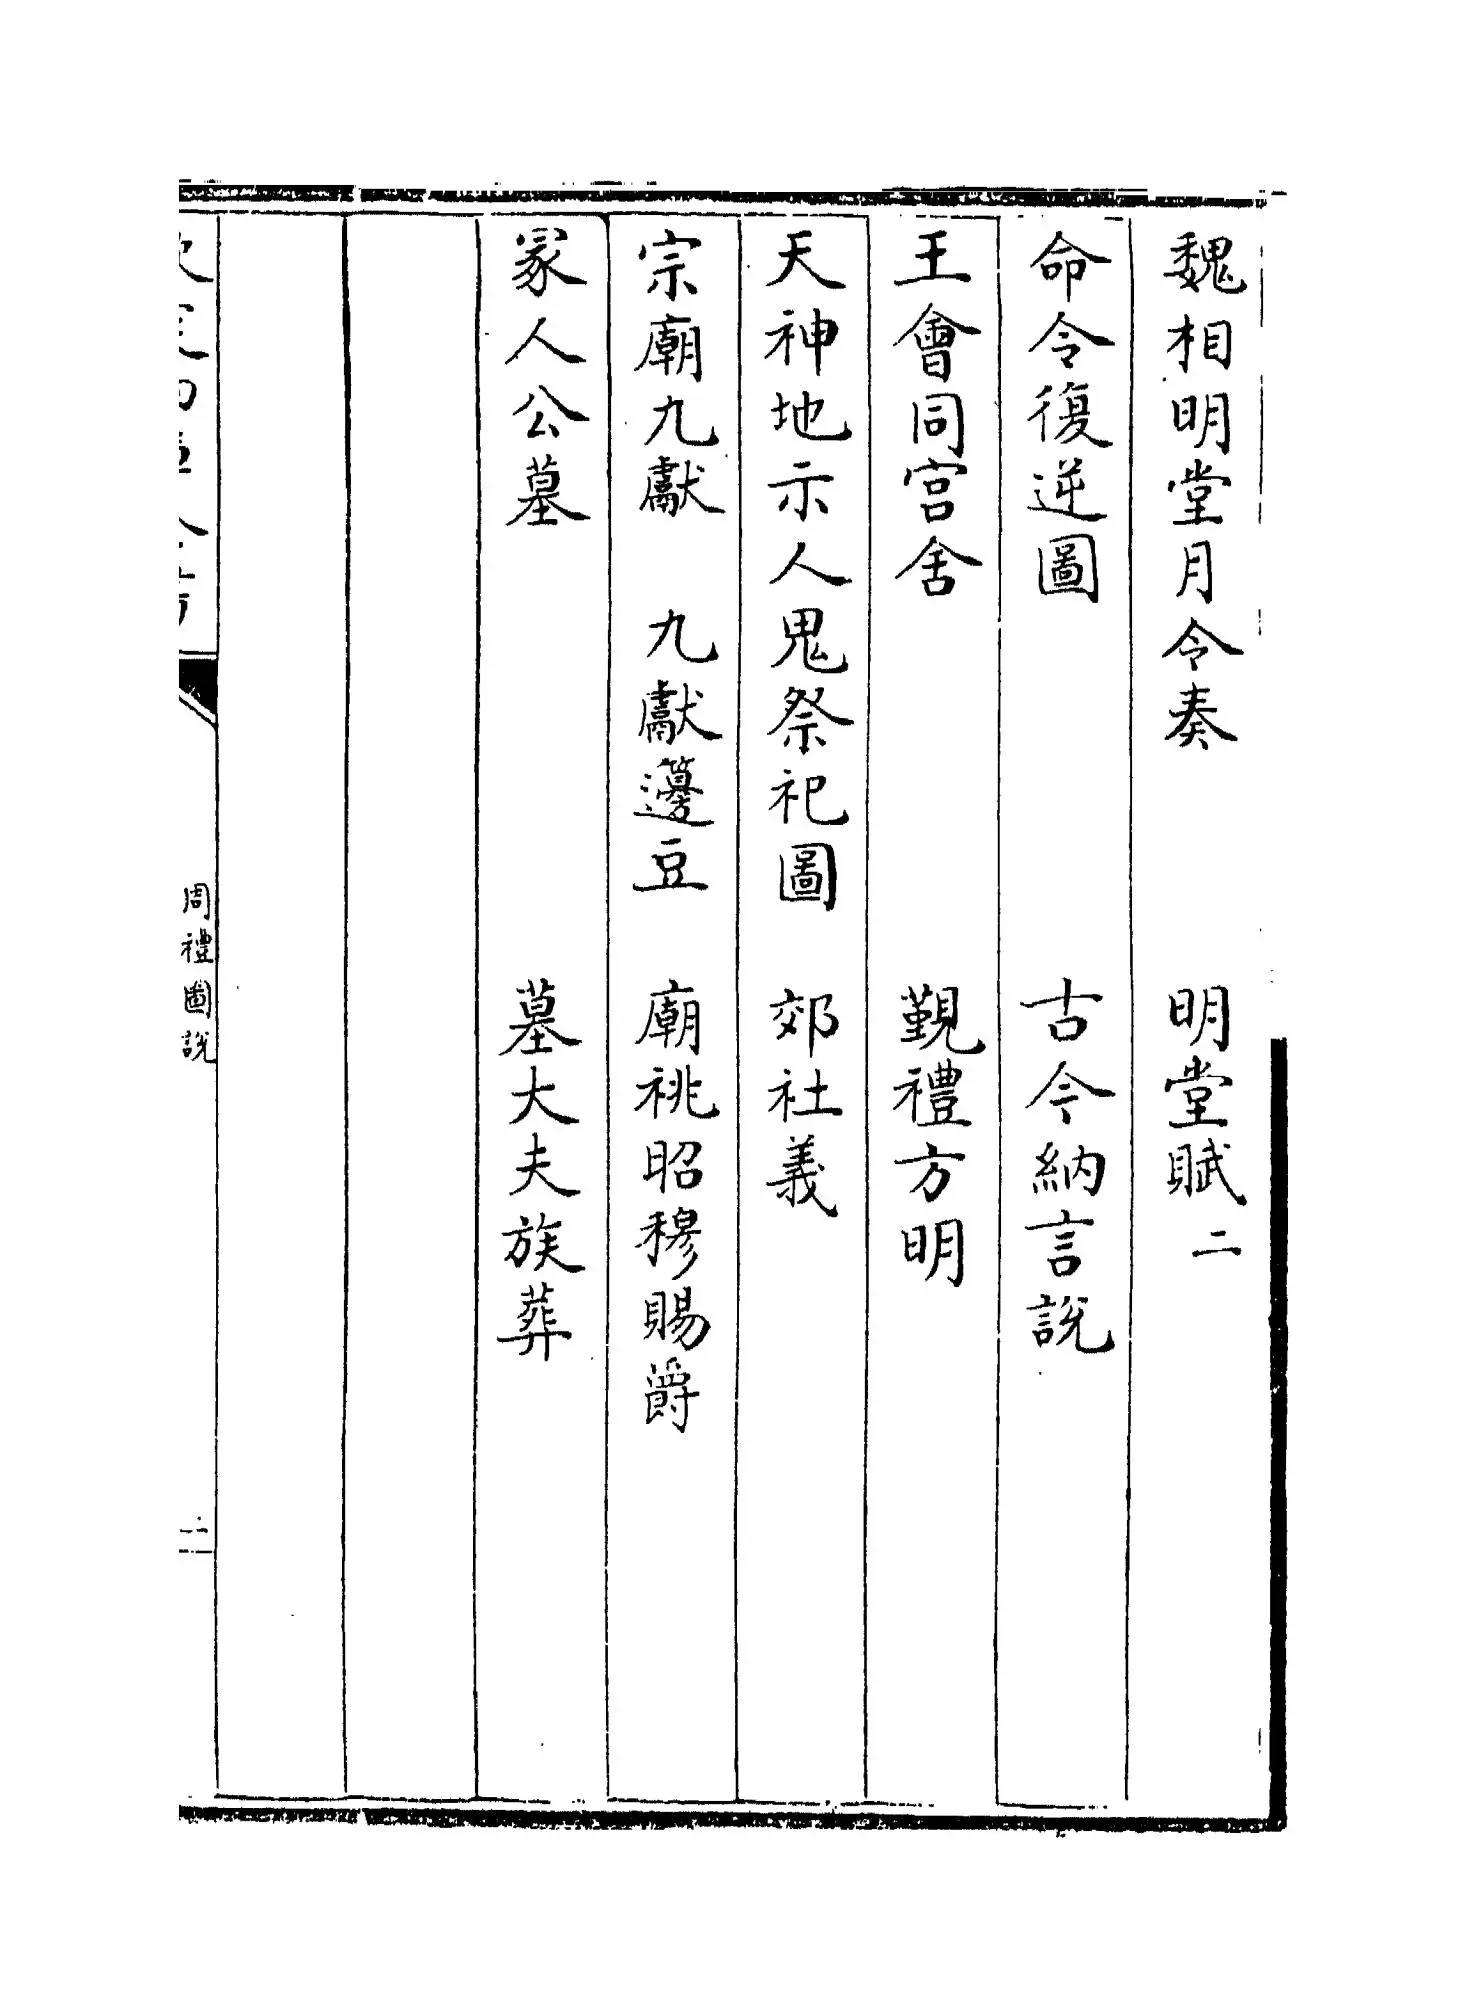 魏相明堂月令奏　明堂賦二
命令復逆圖　古今納言說
王會同宫舍　覲禮方明
天神地示人鬼祭祀圖　郊社義
宗廟九獻　九獻籩豆　廟祧昭穆賜爵
冢人公墓　墓大夫族葬
周禮圖說